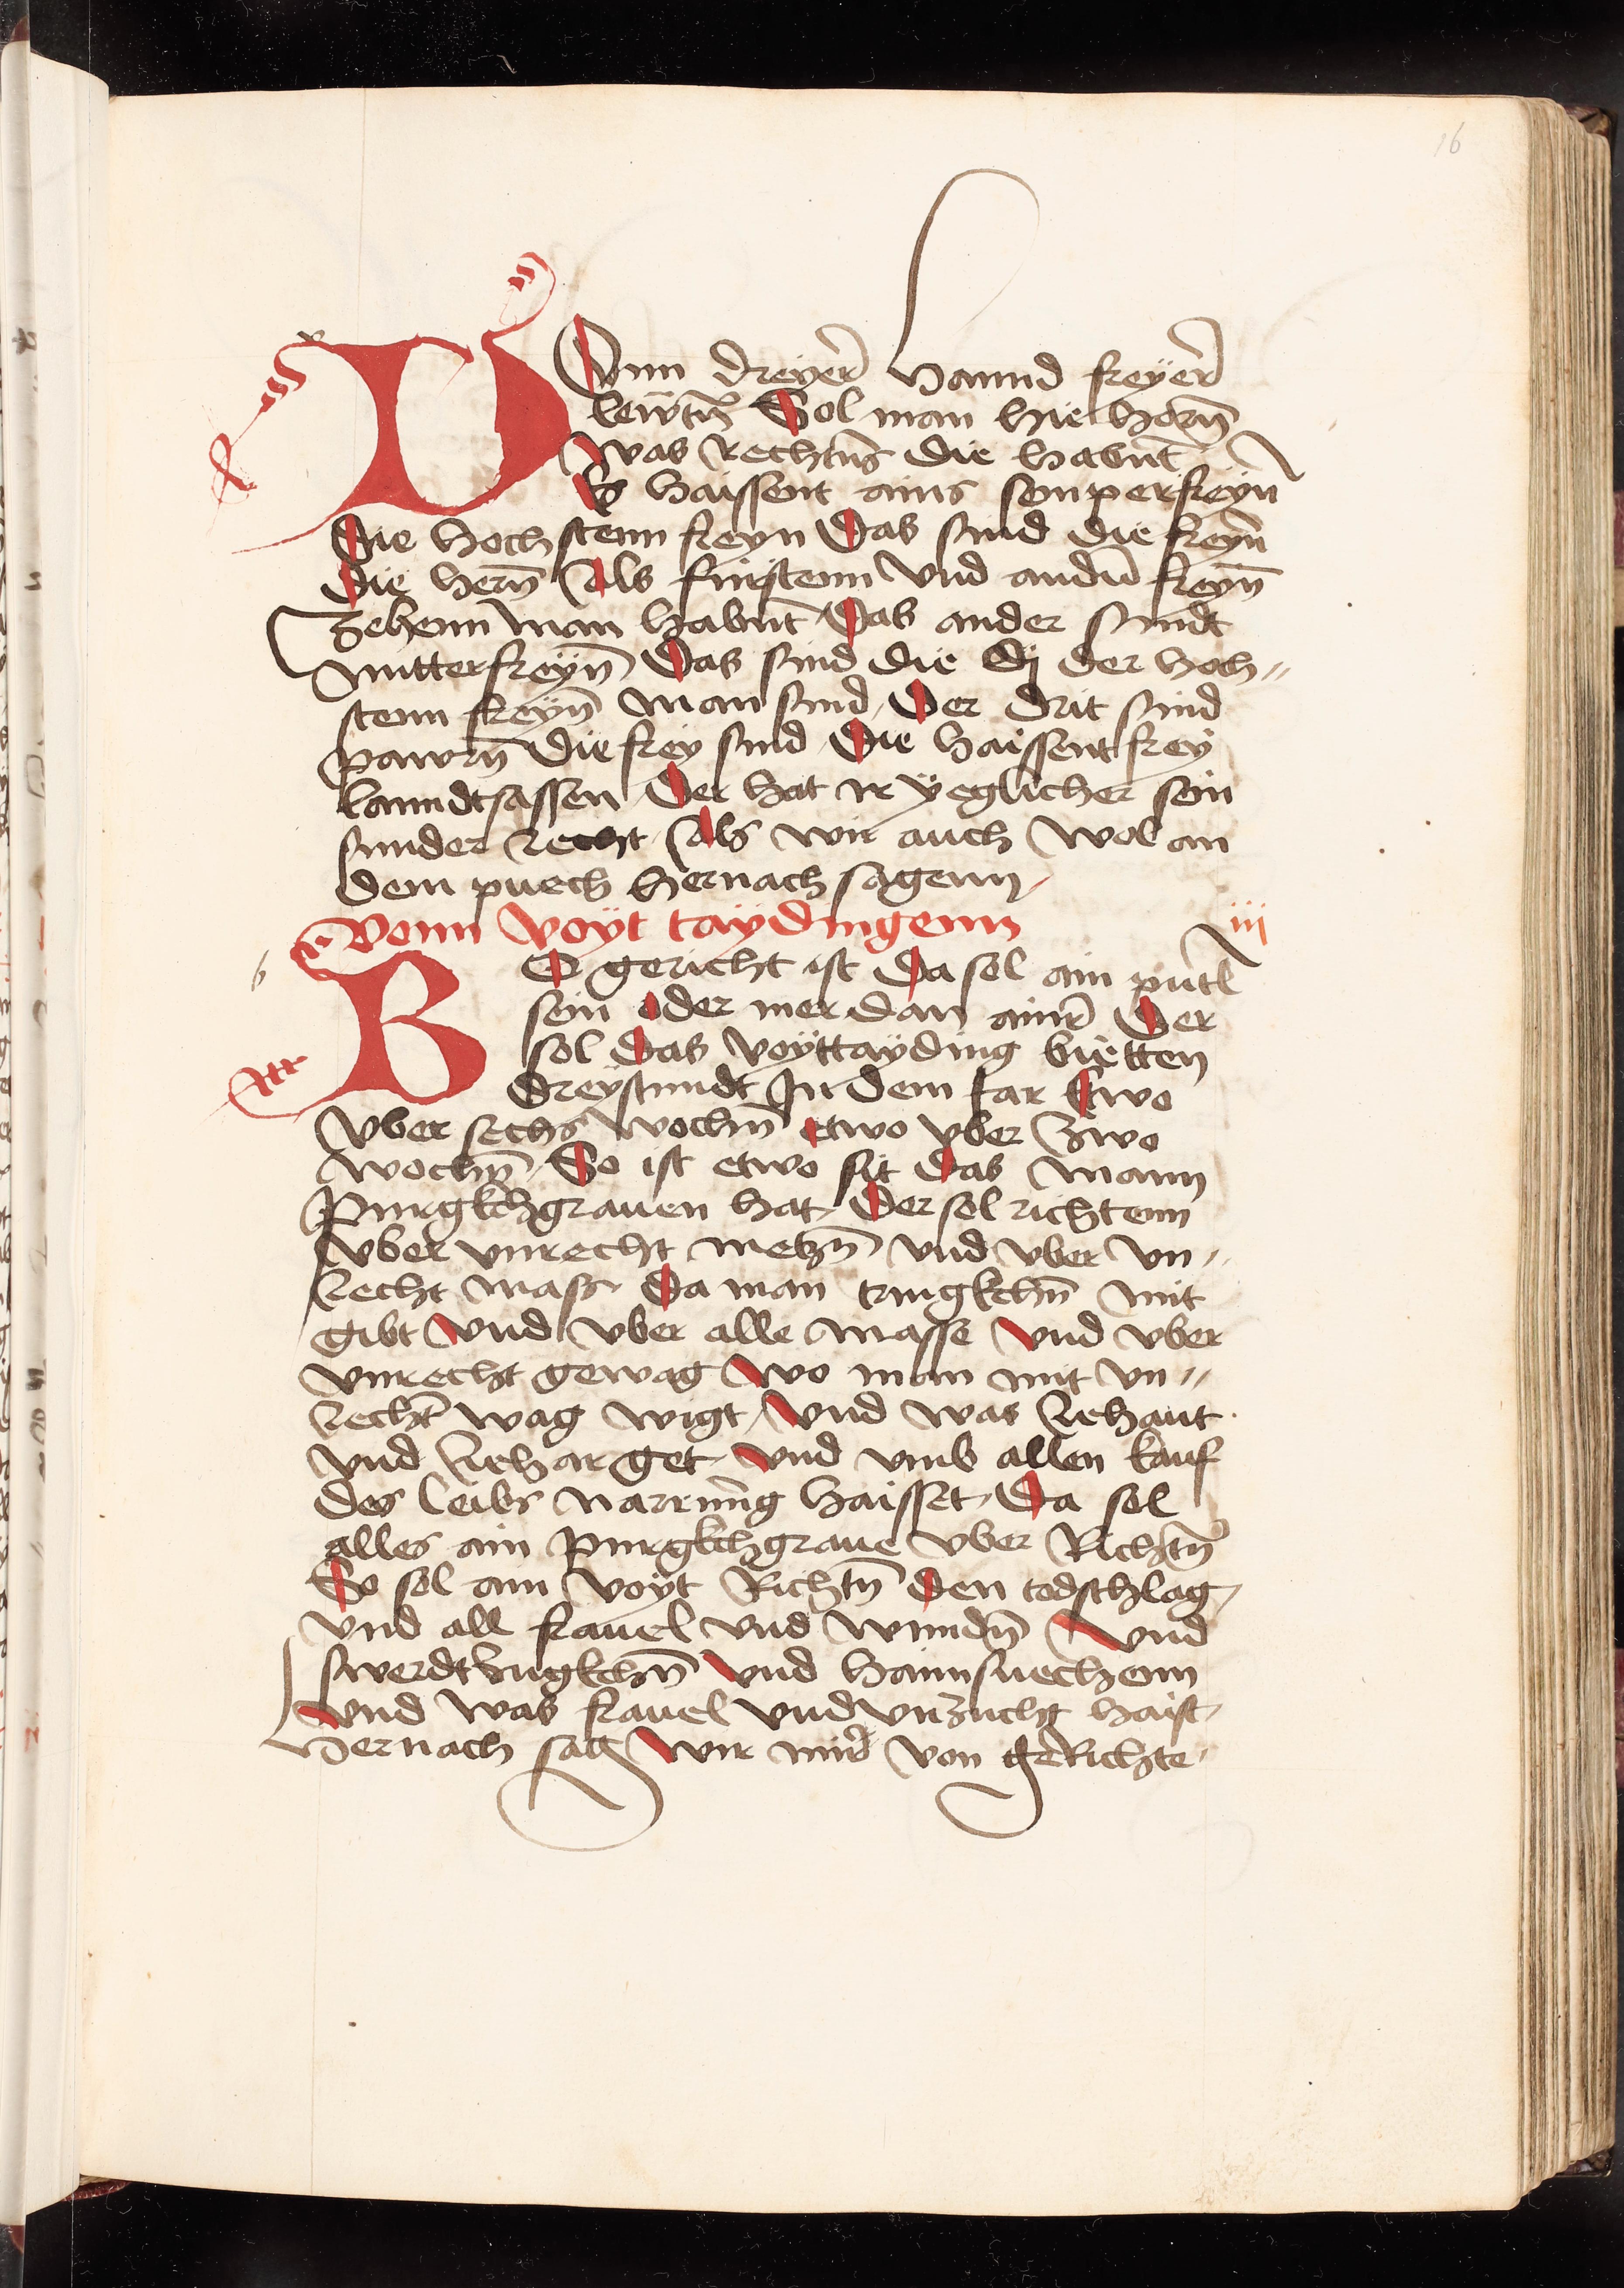 16
VOnn dreyer hannd freyer̄
lewtn̄ Sol man hie horn̄
was rechtns die habnt
Es haissent ains senperfreyn̄
die hochstenn freyn Das sind die freyn̄
die hern̄ Als fürstenn vnd andn̄ freyn̄
Zehenn man habnt Das ander sindt
mitterfreyn̄ Das sind die dj der hoch„
stenn freyn̄ man sind, Der drit sind
pawrn̄ die frey sind Die haissent frey
lanndtsassen Der hat ir yeglicher sein
sunder recht Als wir auch wol an
dem puech hernach sagenn
Vonn voyt taydingenn iij
b
WO gericht ist Da sol ain pütl
sein oder mer dan ainr̄ Der
sol das voyttayding bietten
dreystundt In dem Iar Etwo
vber sechs wochn̄ etwo vber zwo
wochn̄ So ist etwo sit das mann
Purgkhgrauen hat, Der sol richtenn
vber vnrecht metzn̄ vnd vber vn„
recht mass Da man tringkchn̄ mit
gibt vnd vber alle masse vnd vber
vnrecht gewag wo man mit vn„
recht̄ wag wigt, vnd was lehant
vnd get vnd vmb allen kauf
des leibs narrung haisset, Da sol
alles ain Purgkhgraue vber Richtn̄
So sol ain voyt Richtn̄ den todschlag,
vnd all frauel vnd wundn̄ vnd
swerdt vnd haimsuechenn
vnd was frauel vnd vnzucht haist,
hernach sag wir mir̄ von gerichte